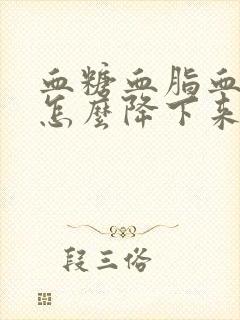 血糖血脂血
怎麼降下来
段三俗